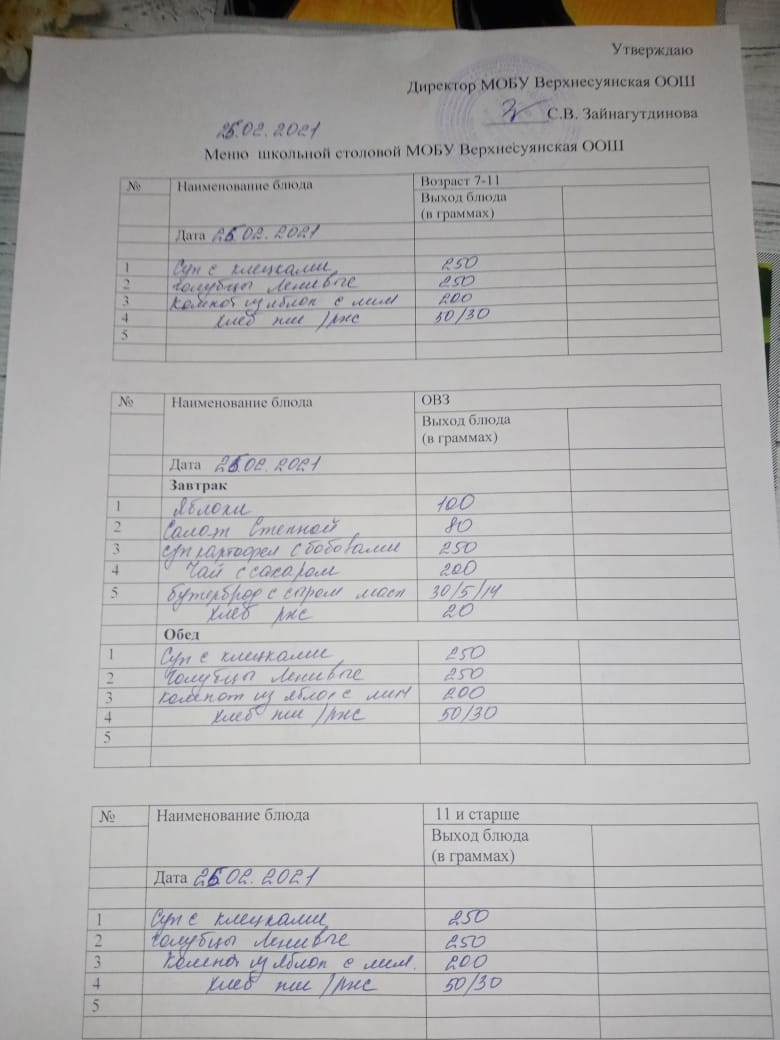 Утверждаю
Директор МОБУ Верхнесуянская ООШ
С.В. Зайнагутдинова
.02.2021
Меню школьной столовой МОБУ Верхнесуянская ООШ
№ Наименование блюда Возраст 7-11
Выход блюда
(в граммах)
Дата .02.2021
1 Суп с клецками 250
2 Голубцы Ленивые 250
3 Компот из яблок с лим 200
4 Хлеб пш/рж 50/30
5
№ Наименование блюда ОВЗ
Выход блюда
(в граммах)
Дата .02.2021
Завтрак
1 Яблоки 100
2 Салат Степной 80
3 Суп картофел с бобовами 250
4 Чай с сахаром 200
5 бутерброд с сыром масл 30/5/14
Хлеб ржс 20
Обед
1 Суп с клецками 250
2 Голубцы Ленивые 250
3 Компот из яблок с лим 200
4 Хлеб пш/ржс 50/30
5
№ Наименование блюда 11 и старше
Выход блюда
(в граммах)
Дата .02.2021
1 Суп с клецками 250
2 Голубцы Ленивые 250
3 Компот из яблок с лим. 200
4 Хлеб пш/ржс 50/30
5